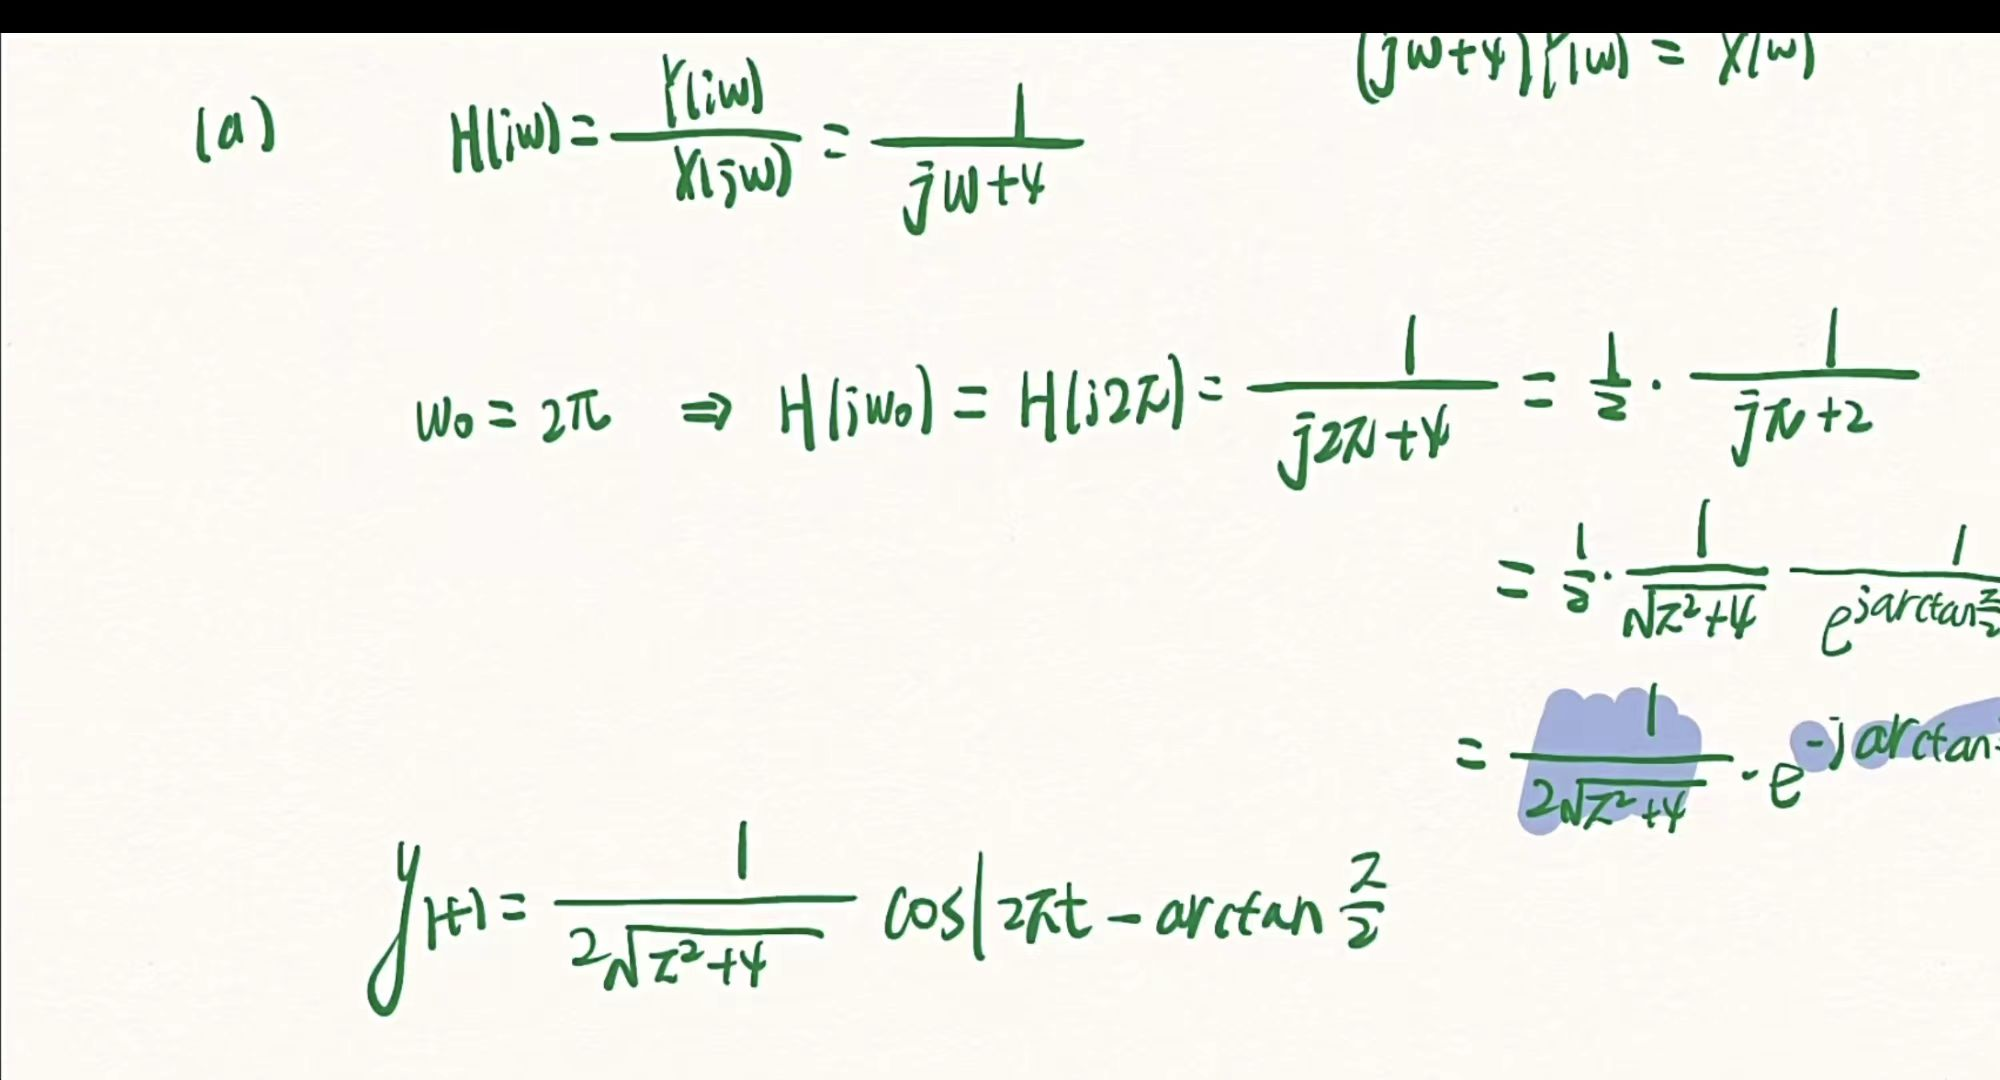 (jw+4)Y(w) = X(w)
(a) H(jw) = Y(jw)/X(jw) = 1/(jw+4)
w₀ = 2π ⇒ H(jw₀) = H(j2π) = 1/(j2π+4) = 1/2 · 1/(jπ+2)
= 1/2 · 1/√(π²+4) 1/e^(jarctan π/2)
= 1/(2√(π²+4)) · e^(-jarctan
y(t) = 1/(2√(π²+4)) cos(2πt - arctan π/2